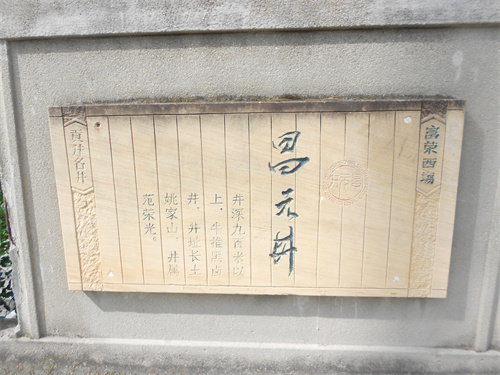 富荣西場
昌元井
井深九百米以
上，牛推黑卤
井，井址长土
姚家山，井属
范荣光。
貢井名井